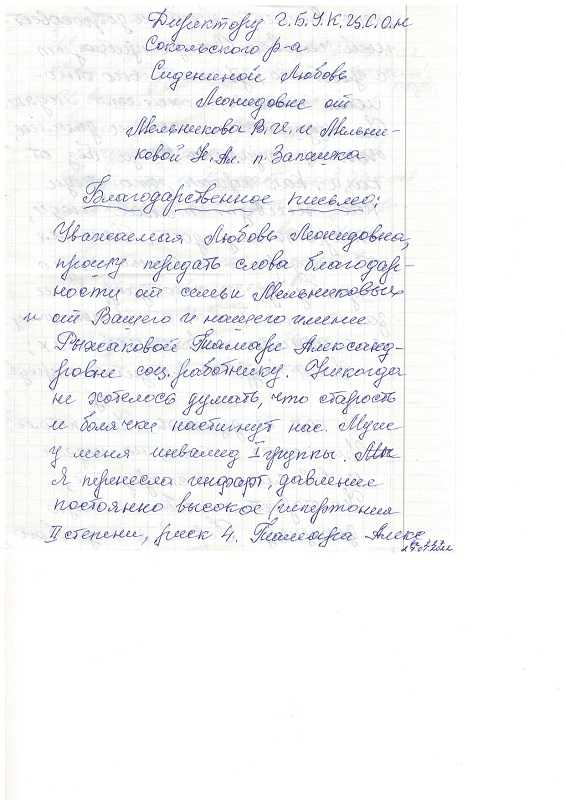 Директору Г.Б.У.К.Ц.С.О.Н
Сокольского р-а
Сидениной Любовь
Леонидовне от
Мельникова В.И. и Мельни-
ковой Н. Ал. п.
Благодарственное письмо:
Уважаемая Любовь Леонидовна,
прошу передать слова благодар-
ности от семьи Мельниковых
и от Вашего и нашего имени
Рыжаковой Тамаре Александ-
ровне соц. работнику. Никогда
не хотелось думать, что старость
и болячки настигнут нас. Муж
у меня инвалид I группы.
Я перенесла инфаркт, давление
постоянно высокое гипертония
II степени, риск 4. Тамара Алекс